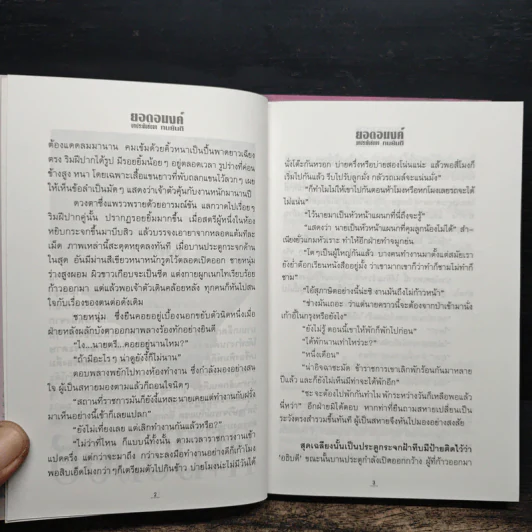 ยอดอนงค์
ต้องแดดลมมานาน คมเข้มด้วยคิ้วหนาเป็นปื้นพาดยาวเฉียง
ตรง ริมฝีปากได้รูป มีรอยยิ้มน้อยๆ อยู่ตลอดเวลา รูปร่างที่ค่อน
ข้างสูง หนา โดยเฉพาะเสื้อแขนยาวที่พับถลกแขนไว้ลวกๆ เผย
ให้เห็นข้อลำเป็นมัดๆ แสดงว่าเจ้าตัวคุ้นกับงานหนักมานานปี
ดวงตาซึ่งพราวพรายด้วยอารมณ์ขัน แลกวาดไปเรื่อยๆ
ริมฝีปากคู่นั้น ปรากฏรอยยิ้มมากขึ้น เมื่อสตรีผู้หนึ่งในห้อง
หยิบกระจกขึ้นมาบีบสิว แล้วบรรจงเอายาจากหลอดแต้มทีละ
เม็ด ภาพเหล่านี้สะดุดหยุดลงทันที เมื่อบานประตูกระจกด้าน
ในสุด อันมีม่านสีเขียวหนาหนักรูดไว้ตลอดเปิดออก ชายหนุ่ม
ร่างสูงผอม ผิวขาวเกือบจะเป็นซีด แต่งกายผูกเนกไทเรียบร้อย
ก้าวออกมา แต่แล้วพอเจ้าตัวเดินคล้อยหลัง ทุกคนก็หันไปสน
ใจกับเรื่องของตนต่อดังเดิม
ชายหนุ่ม ซึ่งยืนคอยอยู่เบื้องนอกขยับตัวนิดหนึ่งเมื่อ
ฝ่ายหลังผลักบังตาออกมาพลางร้องทักอย่างยินดี
“ไง...นายตรี...คอยอยู่นานไหม?”
“ถ้ามีอะไรๆ น่าดูยังงี้ก็ไม่นาน”
ตอบพลางพยักไปทางห้องทำงาน ซึ่งกำลังมองอย่างสน
ใจ ผู้เป็นสหายมองตามแล้วก็ถอนใจนิดๆ
“สถานที่ราชการมันก็ยังงี้แหละนายเคยแต่ทำงานกับฝรั่ง
มาเห็นอย่างนี้เข้าก็เลยแปลก”
“ยังไม่เที่ยงเลย แต่เลิกทำงานกันแล้วหรือ?”
“ไม่ว่าที่ไหน ก็แบบนี้ทั้งนั้น ตามเวลาราชการงานเข้า
แปดครึ่ง แต่กว่าจะมาถึง กว่าจะลงมือทำงานอย่างดีก็เก้าโมง
พอสิบเอ็ดโมงกว่าๆก็เตรียมตัวไปกินข้าว บ่ายโมงน่ะไม่มีวันได้
2
ยอดอนงค์
นั่งโต๊ะกันหรอก บ่ายครึ่งหรือบ่ายสองโน่นแน่ะ แล้วพอสี่โมงก็
เริ่มไปกันแล้ว รีบไปรับลูกมั่ง กลัวรถเมล์จะแน่นมั่ง”
“ก็ทำไมไม่ให้เขาไปกันตอนห้าโมงหรือหกโมงเลยรถจะได้
ไม่แน่น”
“ไว้นายมาเป็นหัวหน้าแผนกที่นี่ถึงจะรู้”
“แสดงว่า นายเป็นหัวหน้าแผนกที่คุมลูกน้องไม่ได้” สำ-
เนียงยั่วแกมหัวเราะ ทำให้อีกฝ่ายทำจมูกย่น
“โตๆเป็นผู้ใหญ่กันแล้ว บางคนทำงานมาตั้งแต่สมัยเรา
ยังขำต๊อกเรียนหนังสืออยู่มั้ง ว่าเขามากเขาก็ว่าทำก็ชามไม่ทำก็
ชาม”
“ได้สุภาษิตอย่างนี้น่ะซิ งานมันถึงไม่ก้าวหน้า”
“ช่างมันเถอะ ว่าแต่นายคราวนี้จะต้องจากป่าเข้ามานั่ง
เก้าอี้ในกรุงหรือยังไง”
“ยังไม่รู้ ตอนนี้เขาให้พักก็พักไปก่อน”
“ได้พักนานเท่าไหร่วะ?”
“หนึ่งเดือน”
“น่าอิจฉาชะมัด ข้าราชการเขาเลิกพักร้อนกันมาหลาย
ปีแล้ว และก็ยังไม่เห็นมีท่าจะได้พักอีก”
“ซะ จะต้องไปพักกันทำไม พักระหว่างวันก็เหลือพอแล้ว
นี่หว่า” อีกฝ่ายมิได้ตอบ หากทำท่ายื่นถามสหายเปลี่ยนเป็น
ระวังตรงสำรวมขึ้นทันที ผู้เป็นสหายจึงหันไปมองอย่างสงสัย
สุดเฉลียงนั้นเป็นประตูกระจกฝ้าทึบมีป้ายติดไว้ว่า
‘อธิบดี’ ขณะนั้นบานประตูกำลังเปิดออกกว้าง ผู้ที่ก้าวออกมา
3